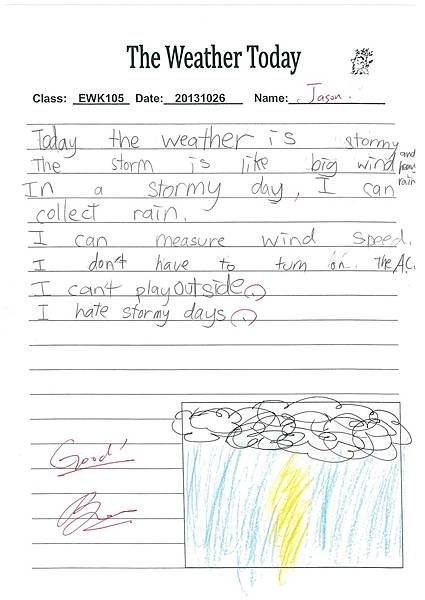 The Weather Today
Class: EWK105 Date: 20131026 Name: Jason.
Today the weather is stormy
The storm is like big wind and heavy rain
In a stormy day, I can
collect rain.
I can measure wind speed.
I don't have to turn on. The AC.
I can't play outside.
I hate stormy days.
Good!